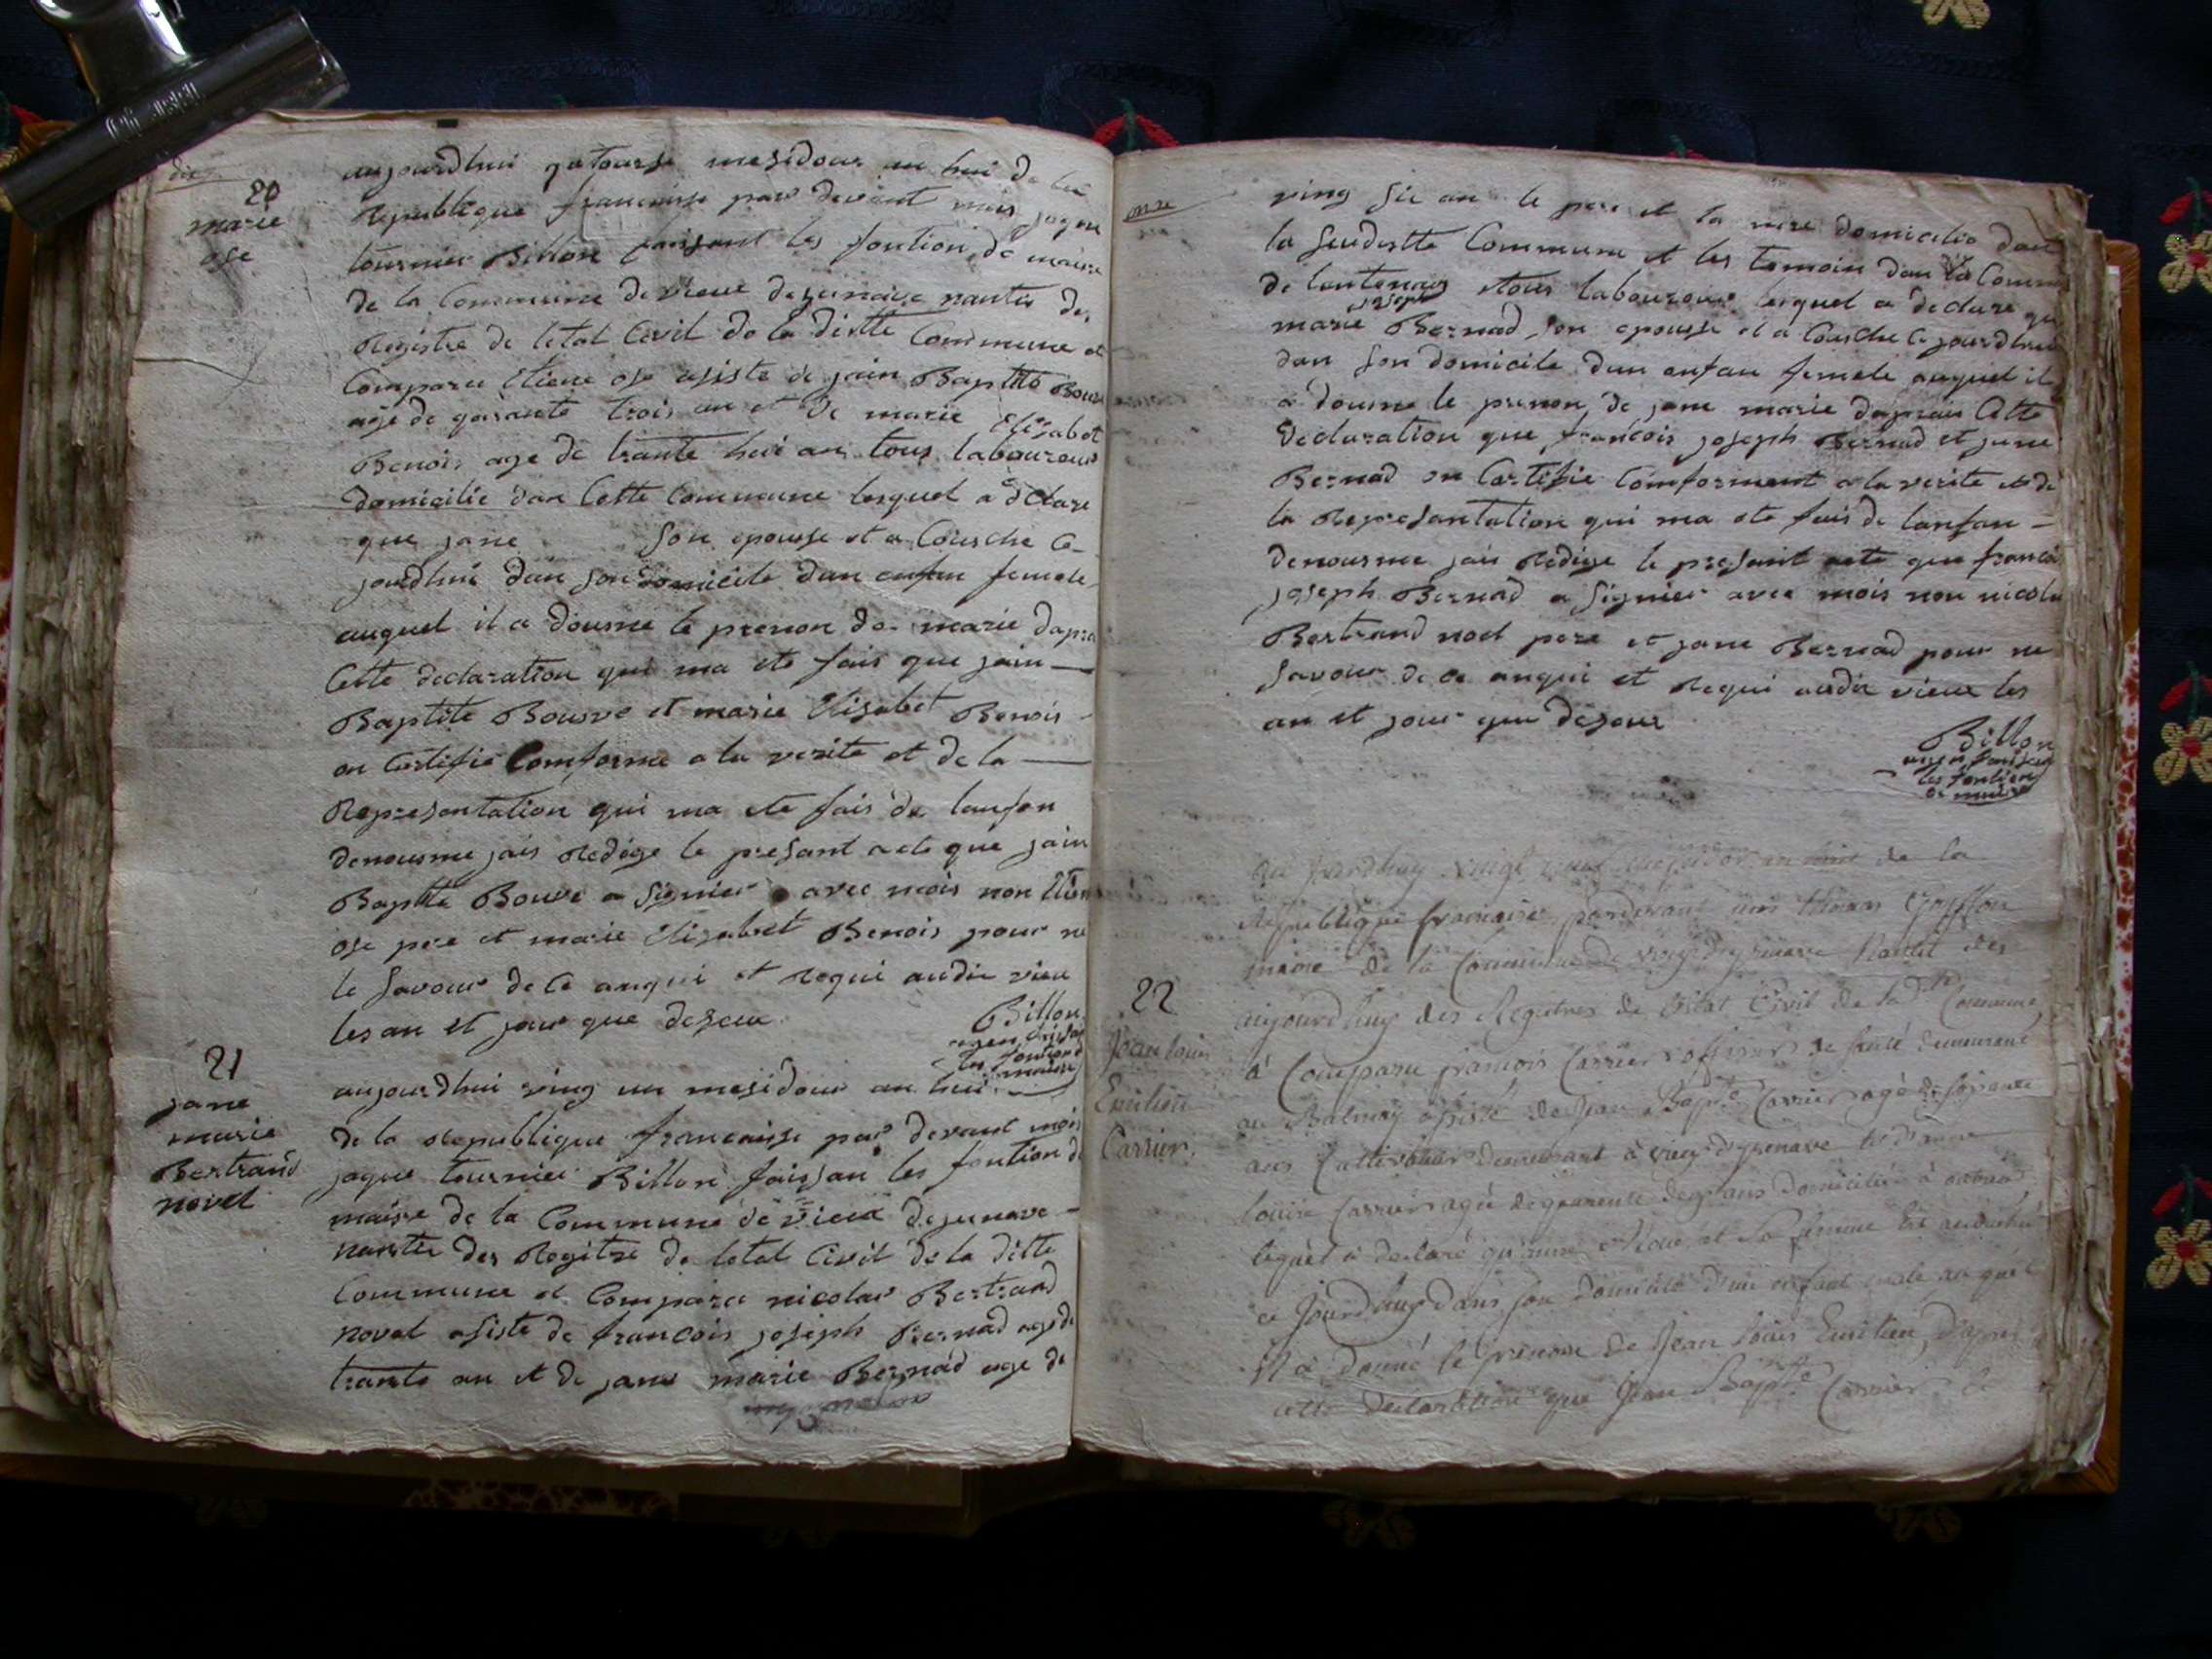 dix
20
marie
ose
aujourdhui qatourse mesidour an hui de la
Republique francaisse par devant mois jaque
tournier Billon faisant les fontion de maire
de la Commune de vieux dezunave nantis des
Registre de letat Civil de la ditte Commune et
Comparu Etiene ose asiste de jain Baptite Bouve
age de qarante trois an et de marie Elisabet
Benois age de trante hui an tous laboureur
domicilie dan Cette Commune lesquel a declare
que jane son epousse et a Cousche Ce
jourdhui dan son domicile dun enfan femele
auquel il a doune le prenon de marie dapre
Cette declaration qui ma ete fais que jain
Baptite Bouve et marie Elisabet Benois
on Certifie Comforme a la verite et de la
Representation qui ma ete fais de lanfan
denousme jais Redige le presant acte que jain
Baptite Bouve a signier avec mois non Etiene
ose pere et marie Elisabet Benois pour ne
le savour de ce anqui et Requi audit vieu
les an et jour que deseux
Billon
agen faisan
les fontion de
maire
21
jane
marie
Bertrand
novel
aujourdhui ving un mesidour an hui
de la Republique francaisse par devant mois
jaque tournier Billon faissan les fontion de
maire de la Commune de vieux dezunave
nantis des Registre de letat Civil de la ditte
Commune et Comparu nicolas Bertrand
novel asiste de francois joseph Bernad age de
trante an et de jane marie Bernad age de
onze
ving sis an le pere et la mere domicilie dan
la susditte Commune et les temoin dan la Commune
de lantenay tous laboureur lesquel a declare que
marie joseph Bernad son epousse et a Cousche Ce jourdhui
dan son domicile dun enfan femele auquel il
a doune le prenon de jane marie daprau Cette
declaration que francois joseph Bernad et jane
Bernad on Certifie Comforment a la verite et de
la Representation qui ma ete fais de lanfan
denousme jais Redige le presant acte que francois
joseph Bernad a signier avec mois non nicola
Bertrand noel pere et jane Bernad pour ne
savour de ce anqui et Requi audit vieux les
an et jour que deseux
Billon
agen faisan
les fontion
de maire
22
Jean louis
Emilien
Carrier
au jourdhuy vingt mesidor an huit de la
République francaise pardevant moi
maire de la Commune de vieu dyzenave Nantit des
aujourdhuy des Registres de l'état Civil de la dte Commune
à Comparu francois Carrier officier de santé demeurant
au Balmay assisté de Jean Bapte Carrier agé de soixante
ans Cultivateur demeurant à vieu dyzenave et d'anne
louise Carrier agée de quarente ans Domiciliée à
lequel à declaré qu'anne et sa femme est accouchée
ce Jourdhuy dans son domicile d'un enfant male au quel
il à donné le prénom de Jean louis Emilien, d'après
cette declaration que Jean Bapte Carrier